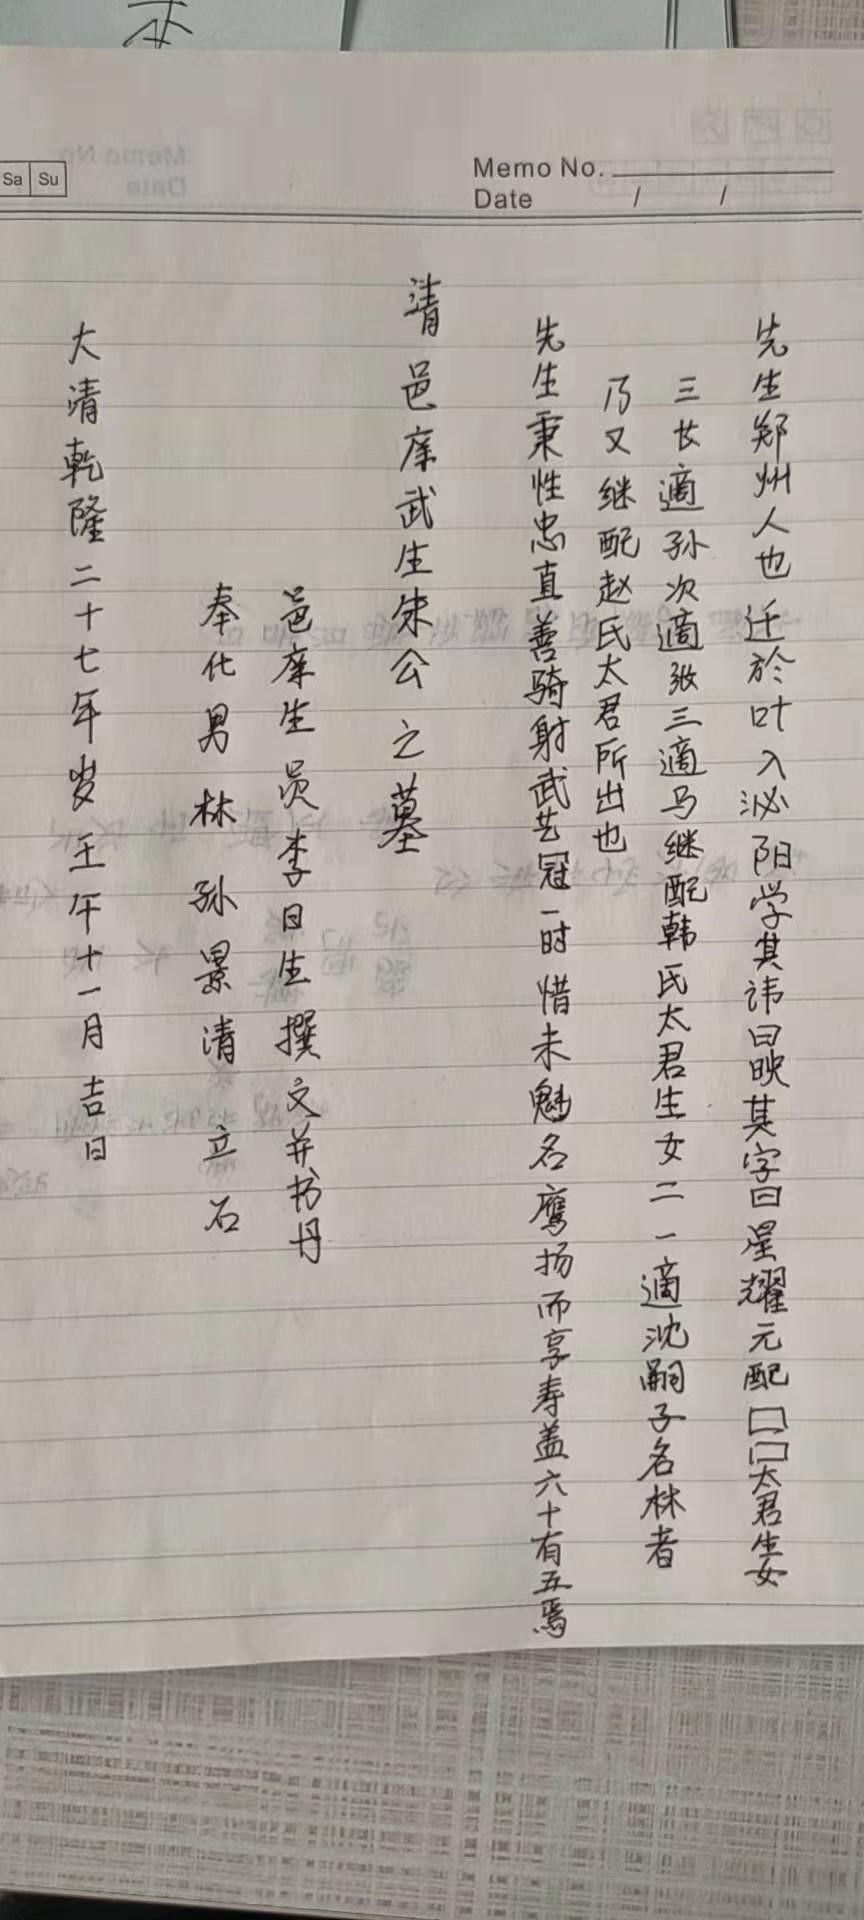 Sa Su
Memo No.
Date / /
先生郑州人也迁於叶入泌阳学其讳曰映其字曰星耀元配□□太君生女
三长適孙次適张三適马继配韩氏太君生女二一適沈嗣子名林者
乃又继配赵氏太君所出也
先生秉性忠直善骑射武艺冠一时惜未魁名鹰扬而享寿盖六十有五焉
清邑庠武生朱公之墓
邑庠生员李日生撰文并书丹
奉化男林孙景清立石
大清乾隆二十七年岁壬午十一月吉日